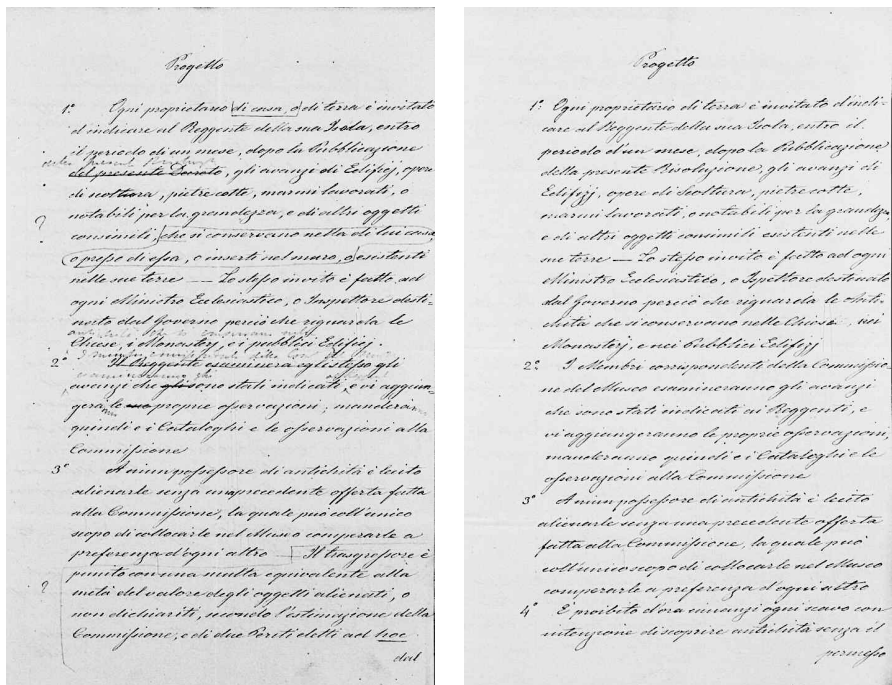 Progetto
1º Ogni proprietario di casa, o di terra è invitato
d'indicare al Reggente della sua Isola, entro
il periodo di un mese, dopo la Pubblicazione
della presente
del presente Decreto, gli avanzi di Edifizj, opere
di scoltura, pietre cotte, marmi lavorati, o
notabili per la grandezza, e di altri oggetti
?
consimili, che si conservano nella di lui casa,
o presso di essa, o inserti nel muro, o esistenti
nelle sue terre — Lo stesso invito è fatto ad
ogni Ministro Ecclesiastico, o Inspettore desti-
nato dal Governo perciò che riguarda le
antichità che si conservano nelle
Chiese, i Monasterj, e i pubblici Edifizj.
I membri corrispondenti della
2º Il Reggente esaminerà egli stesso gli
esamineranno gli
avanzi che gli sono stati indicati, e vi aggiun-
gerà le sue proprie osservazioni; manderà
quindi e i Cataloghi e le osservazioni alla
Commissione
3º A niun possessore di antichità è lecito
alienarle senza una precedente offerta fatta
alla Commissione, la quale può coll'unico
scopo di collocarle nel Museo comperarle a
preferenza d'ogni altro — Il trasgressore è
punito con una multa equivalente alla
?
metà del valore degli oggetti alienati, o
non dichiariti, secondo l'estimazione della
Commissione, e di due Periti eletti ad hoc
dal
Progetto
1º Ogni proprietario di terra è invitato d'indi-
care al Reggente della sua Isola, entro il
periodo d'un mese, dopo la Pubblicazione
della presente Risoluzione, gli avanzi di
Edifizj, opere di Scoltura, pietre cotte,
marmi lavorati, o notabili per la grandezza,
e di altri oggetti consimili esistenti nelle
sue terre — Lo stesso invito è fatto ad ogni
Ministro Ecclesiastico, o Ispettore destinato
dal Governo perciò che riguarda le Anti-
chità che si conservano nelle Chiese, nei
Monasterj, e nei Pubblici Edifizj
2º I Membri corrispondenti della Commissio-
ne del Museo esamineranno gli avanzi
che sono stati indicati ai Reggenti, e
vi aggiungeranno le proprie osservazioni,
manderanno quindi e i Cataloghi e le
osservazioni alla Commissione
3º A niun possessore di antichità è lecito
alienarle senza una precedente offerta
fatta alla Commissione, la quale può
coll'unico scopo di collocarle nel Museo
comperarle a preferenza d'ogni altro
4º E' proibito d'ora innanzi ogni scavo con
intenzione di scoprire antichità senza il
permesso